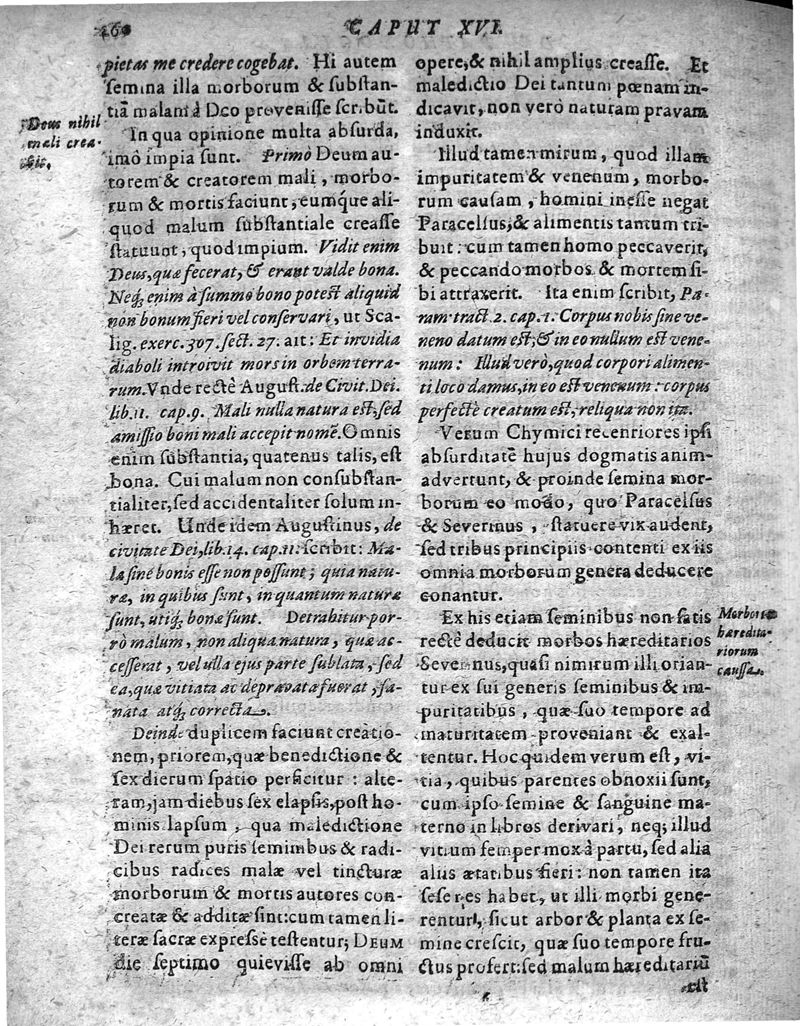 CAPUT XVI.
pietas me credere cogebat. Hi autem
semina illa morborum & substan-
tiã malam à Deo provenisse scribũt.
Deus nihil
mali crea-
vit.
In qua opinione multa absurda,
imò impia sunt. Primò Deum au-
torem & creatorem mali, morbo-
rum & mortis faciunt, eumque ali-
quod malum substantiale creasse
statuunt, quod impium. Vidit enim
Deus, quæ fecerat, & erant valde bona.
Neq; enim à summo bono potest aliquid
non bonum fieri vel conservari, ut Sca-
lig. exerc. 307. sect. 27. ait: Et invidia
diaboli introivit mors in orbem terra-
rum. Vnde rectè August. de Civit. Dei.
lib. 11. cap. 9. Mali nulla natura est, sed
amissio boni mali accepit nomẽ. Omnis
enim substantia, quatenus talis, est
bona. Cui malum non consubstan-
tialiter, sed accidentaliter solum in-
hæret. Unde idem Augustinus, de
civitate Dei, lib. 14. cap. 11. scribit: Ma-
la sine bonis esse non possunt; quia natu-
ræ, in quibus sunt, in quantum naturæ
sunt, utiq; bonæ sunt. Detrahitur por-
rò malum, non aliqua natura, quæ ac-
cesserat, vel ulla ejus parte sublata, sed
ea, quæ vitiata ac depravata fuerat, sa-
nata atq; correcta.
Deinde duplicem faciunt creatio-
nem, priorem, quæ benedictione &
sex dierum spatio perficitur: alte-
ram, jam diebus sex elapsis, post ho-
minis lapsum, qua maledictione
Dei rerum puris seminibus & radi-
cibus radices malæ vel tincturæ
morborum & mortis autores con-
creatæ & additæ sint: cum tamen li-
teræ sacræ expressè testentur; DEUM
die septimo quievisse ab omni
opere, & nihil amplius creasse. Et
maledictio Dei tantum pœnam in-
dicavit, non verò naturam pravam
induxit.
Illud tamen mirum, quod illam
impuritatem & venenum, morbo-
rum causam, homini inesse negat
Paracelsus, & alimentis tantum tri-
buit: cum tamen homo peccaverit,
& peccando morbos & mortem si-
bi attraxerit. Ita enim scribit, Pa-
ram. tract. 2. cap. 1. Corpus nobis sine ve-
neno datum est; & in eo nullum est vene-
num: Illud verò, quod corpori alimen-
ti loco damus, in eo est venenum: corpus
perfectè creatum est, reliqua non ita.
Verum Chymici recentiores ipsi
absurditatẽ hujus dogmatis anim-
advertunt, & proinde semina mor-
borum eo modo, quo Paracelsus
& Severinus, statuere vix audent,
sed tribus principiis contenti ex iis
omnia morborum genera deducere
conantur.
Ex his etiam seminibus non satis
rectè deducit morbos hæreditarios
Severinus, quasi nimirum illi orian-
tur ex sui generis seminibus & im-
puritatibus, quæ suo tempore ad
maturitatem proveniant & exal-
tentur. Hoc quidem verum est, vi-
tia, quibus parentes obnoxii sunt,
cum ipso semine & sanguine ma-
terno in libros derivari, neq; illud
vitium semper mox à partu, sed alia
aliis ætatibus fieri: non tamen ita
sese res habet, ut illi morbi gene-
rentur, sicut arbor & planta ex se-
mine crescit, quæ suo tempore fru-
ctus profert: sed malum hæreditariũ
est
Morborum
hæredita-
riorum
caussa.